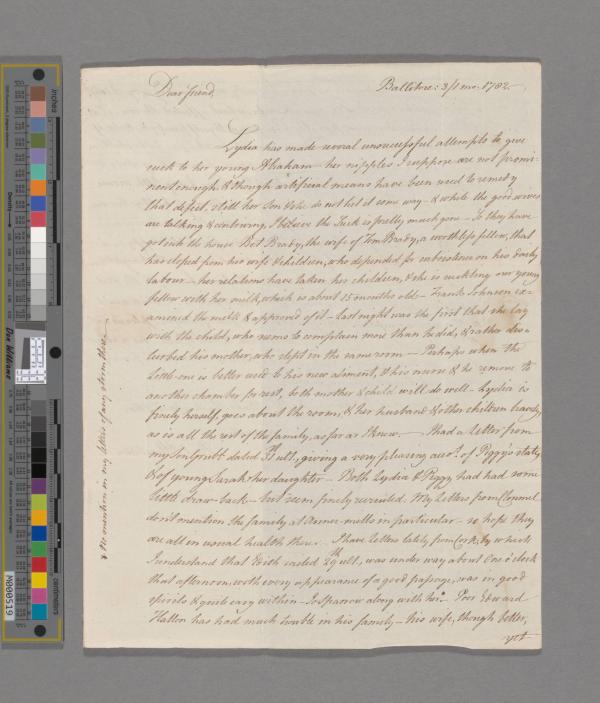 Ballitore: 3/1 mo: 1782.
Dear friend,
Lydia has made several unsuccessful attempts to give
suck to her young Abraham – her nipples I suppose are not promi-
nent enough, & though artificial means have been used to remedy
that defect, still her Son & she do not hit it some way – & while the good wives
are talking & contriving, I believe the Suck is pretty much gone – So they have
got into the house Bet Brady, the wife of Tim Brady, a worthless fellow, that
has eloped from his wife & children, who depended for subsistence on his daily
labour – her relations have taken her children, & she is suckling our young
fellow with her milk, which is about 15 months old – Frank Johnson ex-
amined the milk & approved of it – Last night was the first that she lay
with the child, who seems to complain more than he did, & rather dis-
turbed his mother, who slept in the same room – Perhaps when the
little one is better used to his new aliment, & his nurse & he remove to
another chamber for rest, both mother & child will do well – Lydia is
finely herself, goes about the room, & her husband & other children bravely,
as is all the rest of the family, as far as I know. – I had a letter from
my Son Grubb dated ult., giving a very pleasing acct. of Peggy's state,
& of young Sarah her daughter – Both Lydia & Peggy had had some
little draw-back – but seem finely recruited. My Letters from Clonmel
don't mention the family at Anner-mills in particular – so hope they
are all in usual health there. – I have Letters lately from Cork, by which
I understand that Edith sailed 29th ult., was under way about One o'clock
that afternoon, with every appearance of a good passage, was in good
spirits & quite easy within – Sparrow along with her. – Poor Edward
Hatton has had much trouble in his family – his wife, though better,
yet
& no mention in my letters of any storm there,
inches
centimeters
Don Williams
M000519